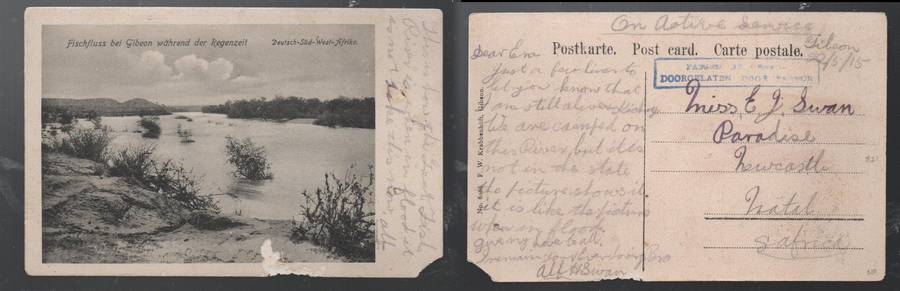 Fischfluss bei Gibeon während der Regenzeit
Deutsch-Süd-West-Afrika.
This how the Fish
River is when in flood
On Active Service
Gibeon
22/5/15
Postkarte. Post card. Carte postale.
PASSED BY CENSOR
DOORGELATEN DOOR CENSOR
Dear Em
Just a few lines to
let you know that
I am still alive & kicking
We are camped on
this River, but it is
not in the state
the picture shows it
it is like the picture
when in flood.
give my love to all.
I remain your ever loving Bro
Alf H Swan
F. W. Krabbenhöft, Gibeon.
Miss E J. Swan
Paradise
Newcastle
Natal
S Africa